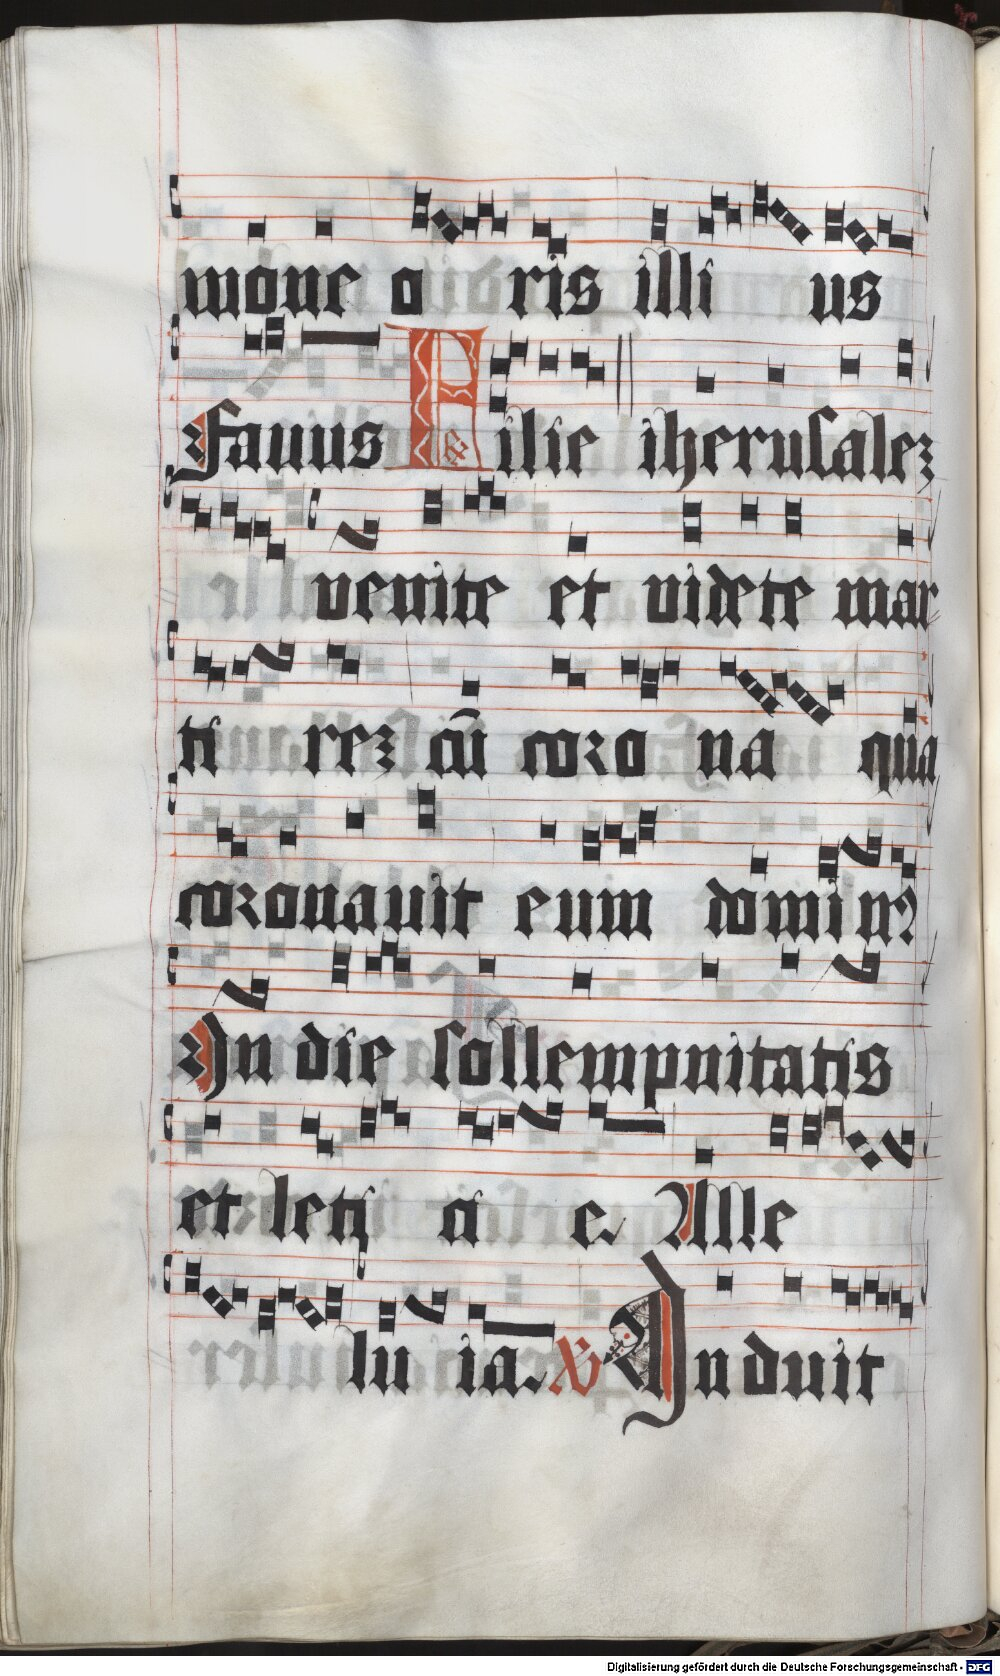 mone o ris illi us
Fauus Filie iherusalez
venite et videte mar
ti rez cū coro na qua
coronauit eum domin⁹
In die sollempnitatis
et leti ci e. Alle
lu ia. ℟ Induit
Digitalisierung gefördert durch die Deutsche Forschungsgemeinschaft - DFG